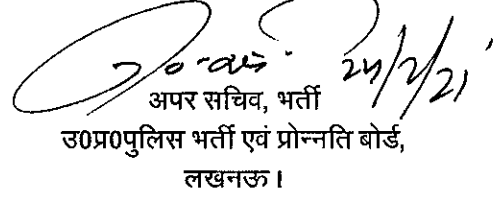 24/2/21
अपर सचिव, भर्ती
उ0प्र0पुलिस भर्ती एवं प्रोन्नति बोर्ड,
लखनऊ।